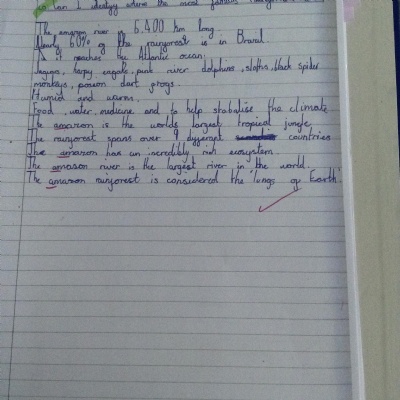 Can I identify where the most famous
The amazon river 6,400 km long.
Nearly 60% of the rainforest is in Brazil
it reaches the Atlantic ocean
Jaguars, harpy eagle, pink river dolphins, sloths, black spider
monkeys, poison dart frogs.
Humid and warm.
Food, water, medicine and to help stabalise the climate
The amazon is the worlds largest tropical jungle
The rainforest spans over 9 different countries
The amazon has an incredibly rich ecosystem.
The amazon river is the largest river in the world.
The amazon rainforest is considered the 'lungs of Earth'